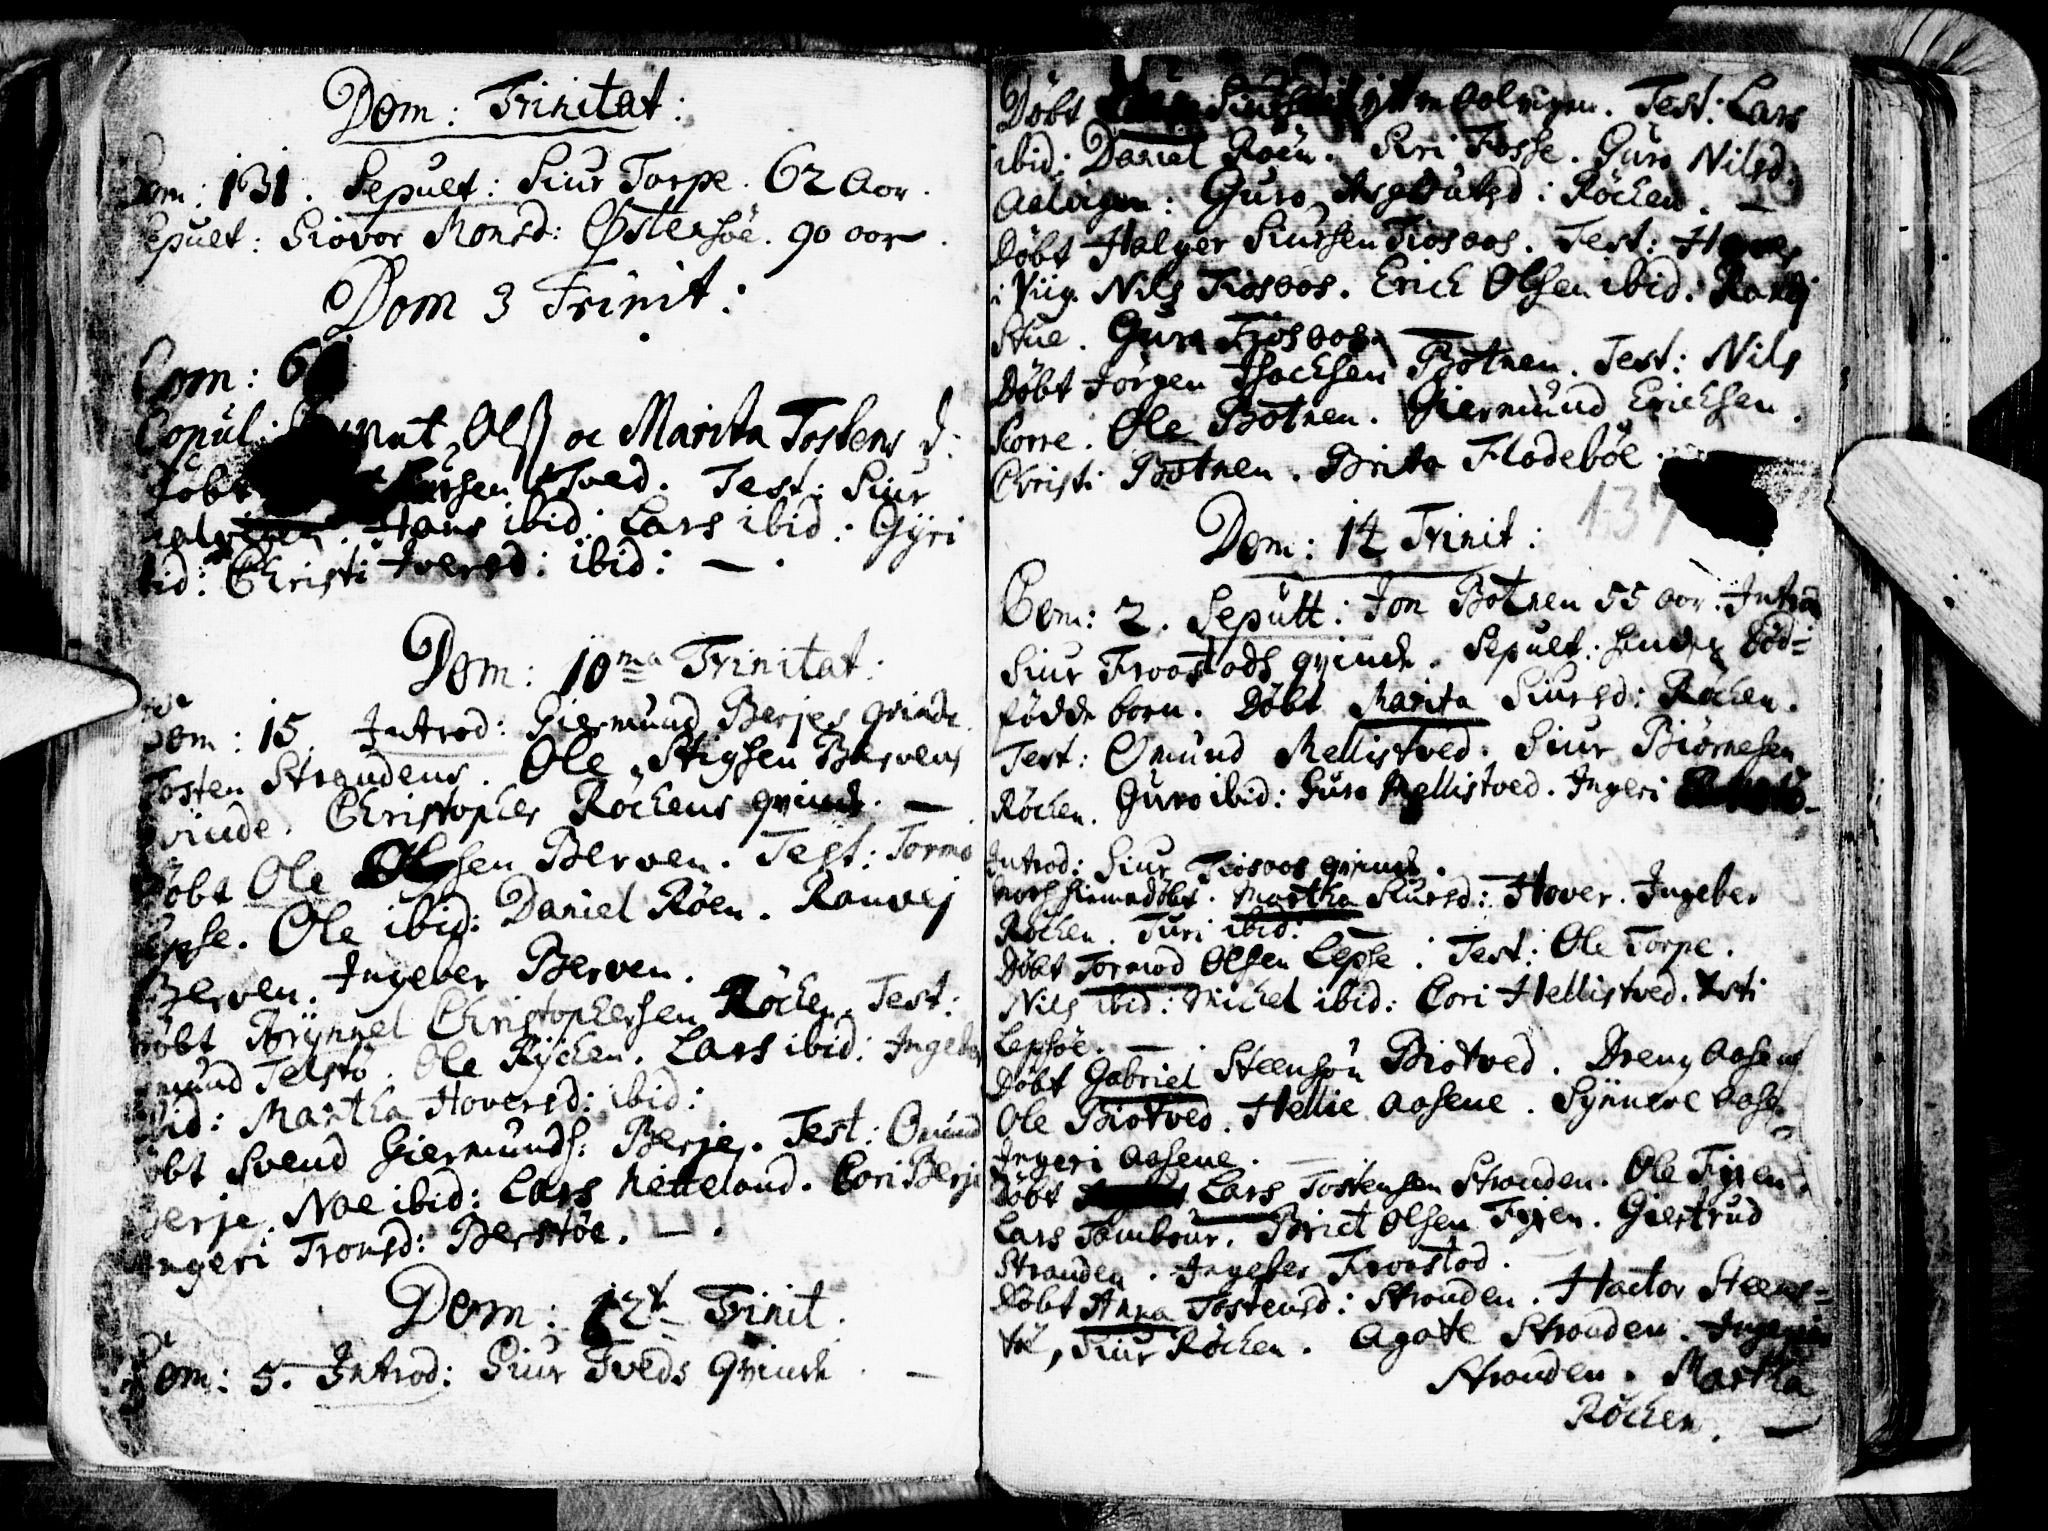 Dom: Trinitat:
Com: 131. Sepult: Siur Torpe. 62 aar.
Sepult: Siovor Monsd: Østensöe. 90 oor.
Dom 3 Trinit:
Com: 6
Copul: Olß oc Marita Tostens d:
Döbt Tved. Test: Siur
Hans ibid: Lars ibid: Gÿri
ibid: Christi Iversd: ibid: —.
Dom: 10ma Trinitat:
Com: 15. Introd: Giermund Berjes qvinde
Tosten Strandens. Ole Stigsen Bervens
qvinde. Christopher Röckens qvinde. —
Döbt Ole Olsen Berven. Test: Tormo
Lepse. Ole ibid: Daniel Röen. Ranvej
Berven. Ingeber Berven.
Döbt Brÿnnel Christophersen Röcken. Test:
Omund Telstö. Ole Röcken. Lars ibid: Ingeber
ibid: Martha Hoversd: ibid:
Döbt Svend Giermunds: Berje. Test: Omund
Berje. Noe ibid: Lars Netteland. Cori Berje
Ingeri Tronsd: Berstöe. —.
Dom: 12t Trinit.
Com: 5. Introd: Siur Tveds qvinde. —
Döbt Test: Lars
ibid: Daniel Röen. Siri Fosse. Guro Nilsd:
Aalvigen: Guro Asgoutsd: Röcken. —
Döbt Halger Siursen Tiosaas. Test:
i Viig. Nils Tiosaas. Erick Olsen ibid:
Stue. Guro Tiosaas.
Döbt Jörgen Isacksen Botnen. Test: Nils
Skorre. Ole Botnen. Giermund Ericksen.
Christi Botnen. Brita Fladeböe.
137
Dom: 14 Trinit:
Com: 2. Sepult: Jon Botnen 55 aar. Introd
Siur Froostads qvinde. Sepult: hendes död-
födde born. Döbt Marita Siursd: Röcken.
Test: Omund Mellistved. Siur Biörnesen
Röcken. Guro ibid: Guro Mellistved. Ingeri
Introd: Siur Tiosaas qvinde.
noch hiemedöbt. Martha Siursd: Hover. Ingeber
Röcken. Turi ibid:
Döbt Tormod Olsen Lepse. Test: Ole Torpe.
Nils ibid: Michel ibid: Cori Hellistved.
Lepsöe. —
Döbt Gabriel Steensön Biotved. Dreng Aasene
Ole Biotved. Hellie Aasene. Sÿnnere Aase-
Ingeri Aasene. —
Döbt Lars Tostensen Stranden. Ole Tÿren.
Lars Tambour. Briet Olsen Tÿren. Giertrud
Stranden. Ingeber Froostad.
Döbt Anna Tostensd: Stranden. Hactor Steens-
tö, Siur Röcken. Agate Stranden. Ingeri
Stranden. Martha
Röcken. —